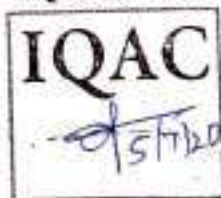 IQAC
5/7/20